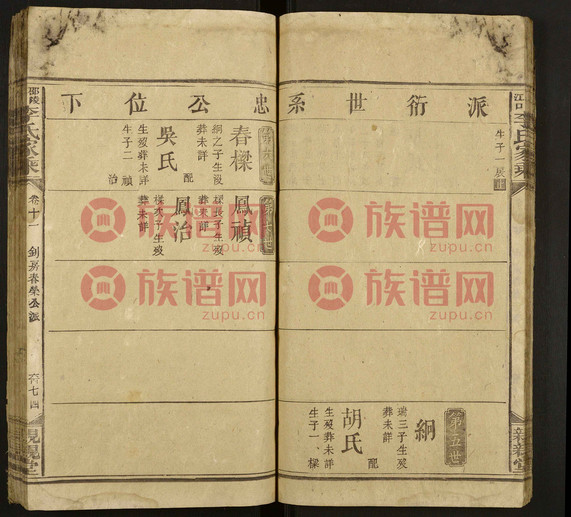 派衍世系忠公位下
生子一展止
第五世
絅
瑞三子生殁
葬未詳
配
胡氏
生殁葬未詳
生子一樑
春樑
絅之子生殁
葬未詳
配
吳氏
生殁葬未詳
生子二禎
治
鳳禎
樑長子生殁
葬未詳
鳳治
樑次子生殁
葬未詳
邵陵
李氏家乘
卷十一
釗房春榮公派
六七四
親親堂
族谱网
zupu.cn
族谱网
zupu.cn
族谱网
zupu.cn
族谱网
zupu.cn